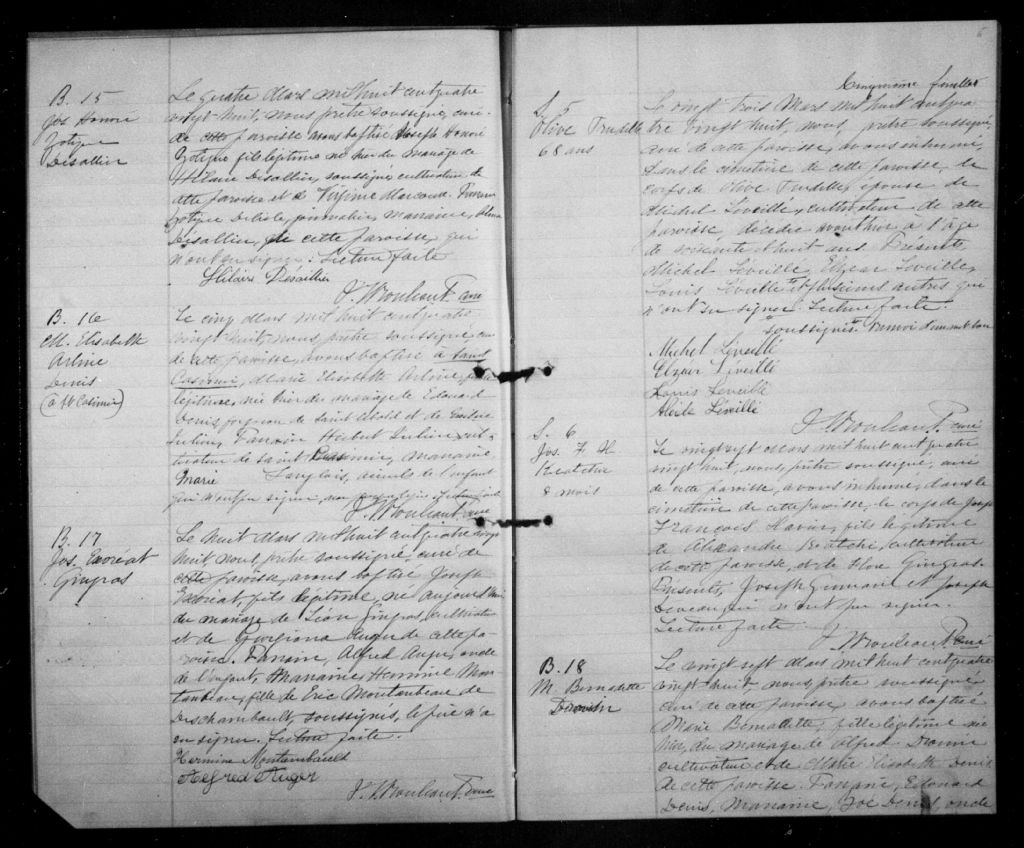 B. 15
Jos Honoré
Zotique
Désallier
Le quatre Mars mil huit cent quatre
vingt huit, nous prêtre soussigné, curé
de cette paroisse avons baptisé Joseph Honoré
Zotique fils légitime né hier du mariage de
Hilaire Désallier, soussigné, cultivateur de
cette paroisse et de Virginie Marcoux. Parrain
Zotique Delisle, journalier, marraine,
Désallier, de cette paroisse, qui
n'ont su signer. Lecture faite
Hilaire Désaillier
Ptre curé
B. 16
M. Elisabeth
Arline
Denis
(à St Casimir)
Le cinq Mars mil huit cent quatre
vingt huit, nous, prêtre soussigné, curé
de cette paroisse, avons baptisé à Saint
Casimir, Marie Elisabeth Arline, fille
légitime, née hier du mariage de Edouard
Denis forgeron de Saint et de
Julien, Parrain Hubert Julien cul-
tivateur de Saint Casimir, marraine,
Marie Langlois, aieule de l'enfant
qui n'ont su signer, non
Ptre curé
B. 17
Jos. Exoréat
Gingras
Le huit Mars mil huit cent quatre vingt
huit, nous, prêtre soussigné, curé de
cette paroisse, avons baptisé Joseph
Exoréat, fils légitime, né aujourd'hui
du mariage de Léon Gingras, cultivateur
et de Georgiana Auger de cette pa-
roisse. Parrain, Alfred Auger, oncle
de l'enfant, Marraine, Hermine Mon-
tambeau, fille de Eric Montambeau de
Deschambault, soussignés, le père n'a
su signer. Lecture faite.
Hermine Montambault
Alfred Auger
Ptre curé
6
feuillet
S. 5
Olive Trudelle
68 ans
Le vingt trois Mars mil huit cent qua-
tre vingt huit, nous, prêtre soussigné,
curé de cette paroisse, avons inhumé,
dans le cimetière de cette paroisse, le
corps de Olive Trudelle, épouse de
Michel Léveillé, cultivateur de cette
paroisse, décédée avant hier à l'âge
de soixante et huit ans. Présents
Michel Léveillé, Elzear Léveillé,
Louis Léveillé et plusieurs autres qui
n'ont su signer. Lecture faite.
soussignés. Renvoi d'un mot bon
Michel Léveillé
Elzear Léveillé
Louis Léveillé
Léveillé
Ptre curé
S. 6
Jos. F. X
8 mois
Le vingt sept Mars mil huit cent quatre
vingt huit, nous, prêtre soussigné, curé
de cette paroisse, avons inhumé, dans le
cimetière de cette paroisse, le corps de Joseph
François Xavier, fils légitime
de Alexandre, cultivateur
de cette paroisse, et de Flore Gingras.
Présents, Joseph Germain et Joseph
qui n'ont pu signer.
Lecture faite.
Ptre curé
B. 18
M. Bernadette
Drouin
Le vingt sept Mars mil huit cent quatre
vingt huit, nous, prêtre soussigné
curé de cette paroisse avons baptisé
Marie Bernadette, fille légitime née
hier, du mariage de Alfred Drouin
cultivateur et de Marie Elisabeth Denis
de cette paroisse. Parrain, Edouard
Denis, Marraine, Zoé Denis, oncle